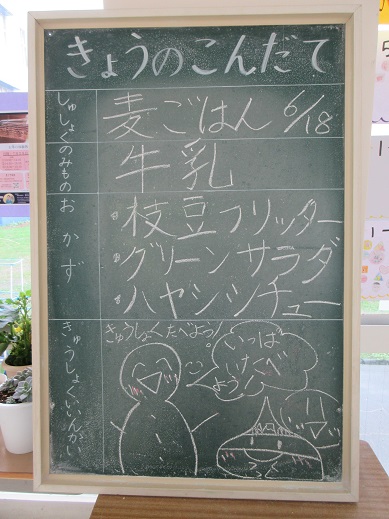 きょうのこんだて
しゅしょく
麦ごはん 6/18
のみもの
牛乳
おかず
枝豆フリッター
グリーンサラダ
ハヤシシチュー
きゅうしょくいいんかい
きゅうしょくたべよう!。
いっぱ
いたべ
よう!